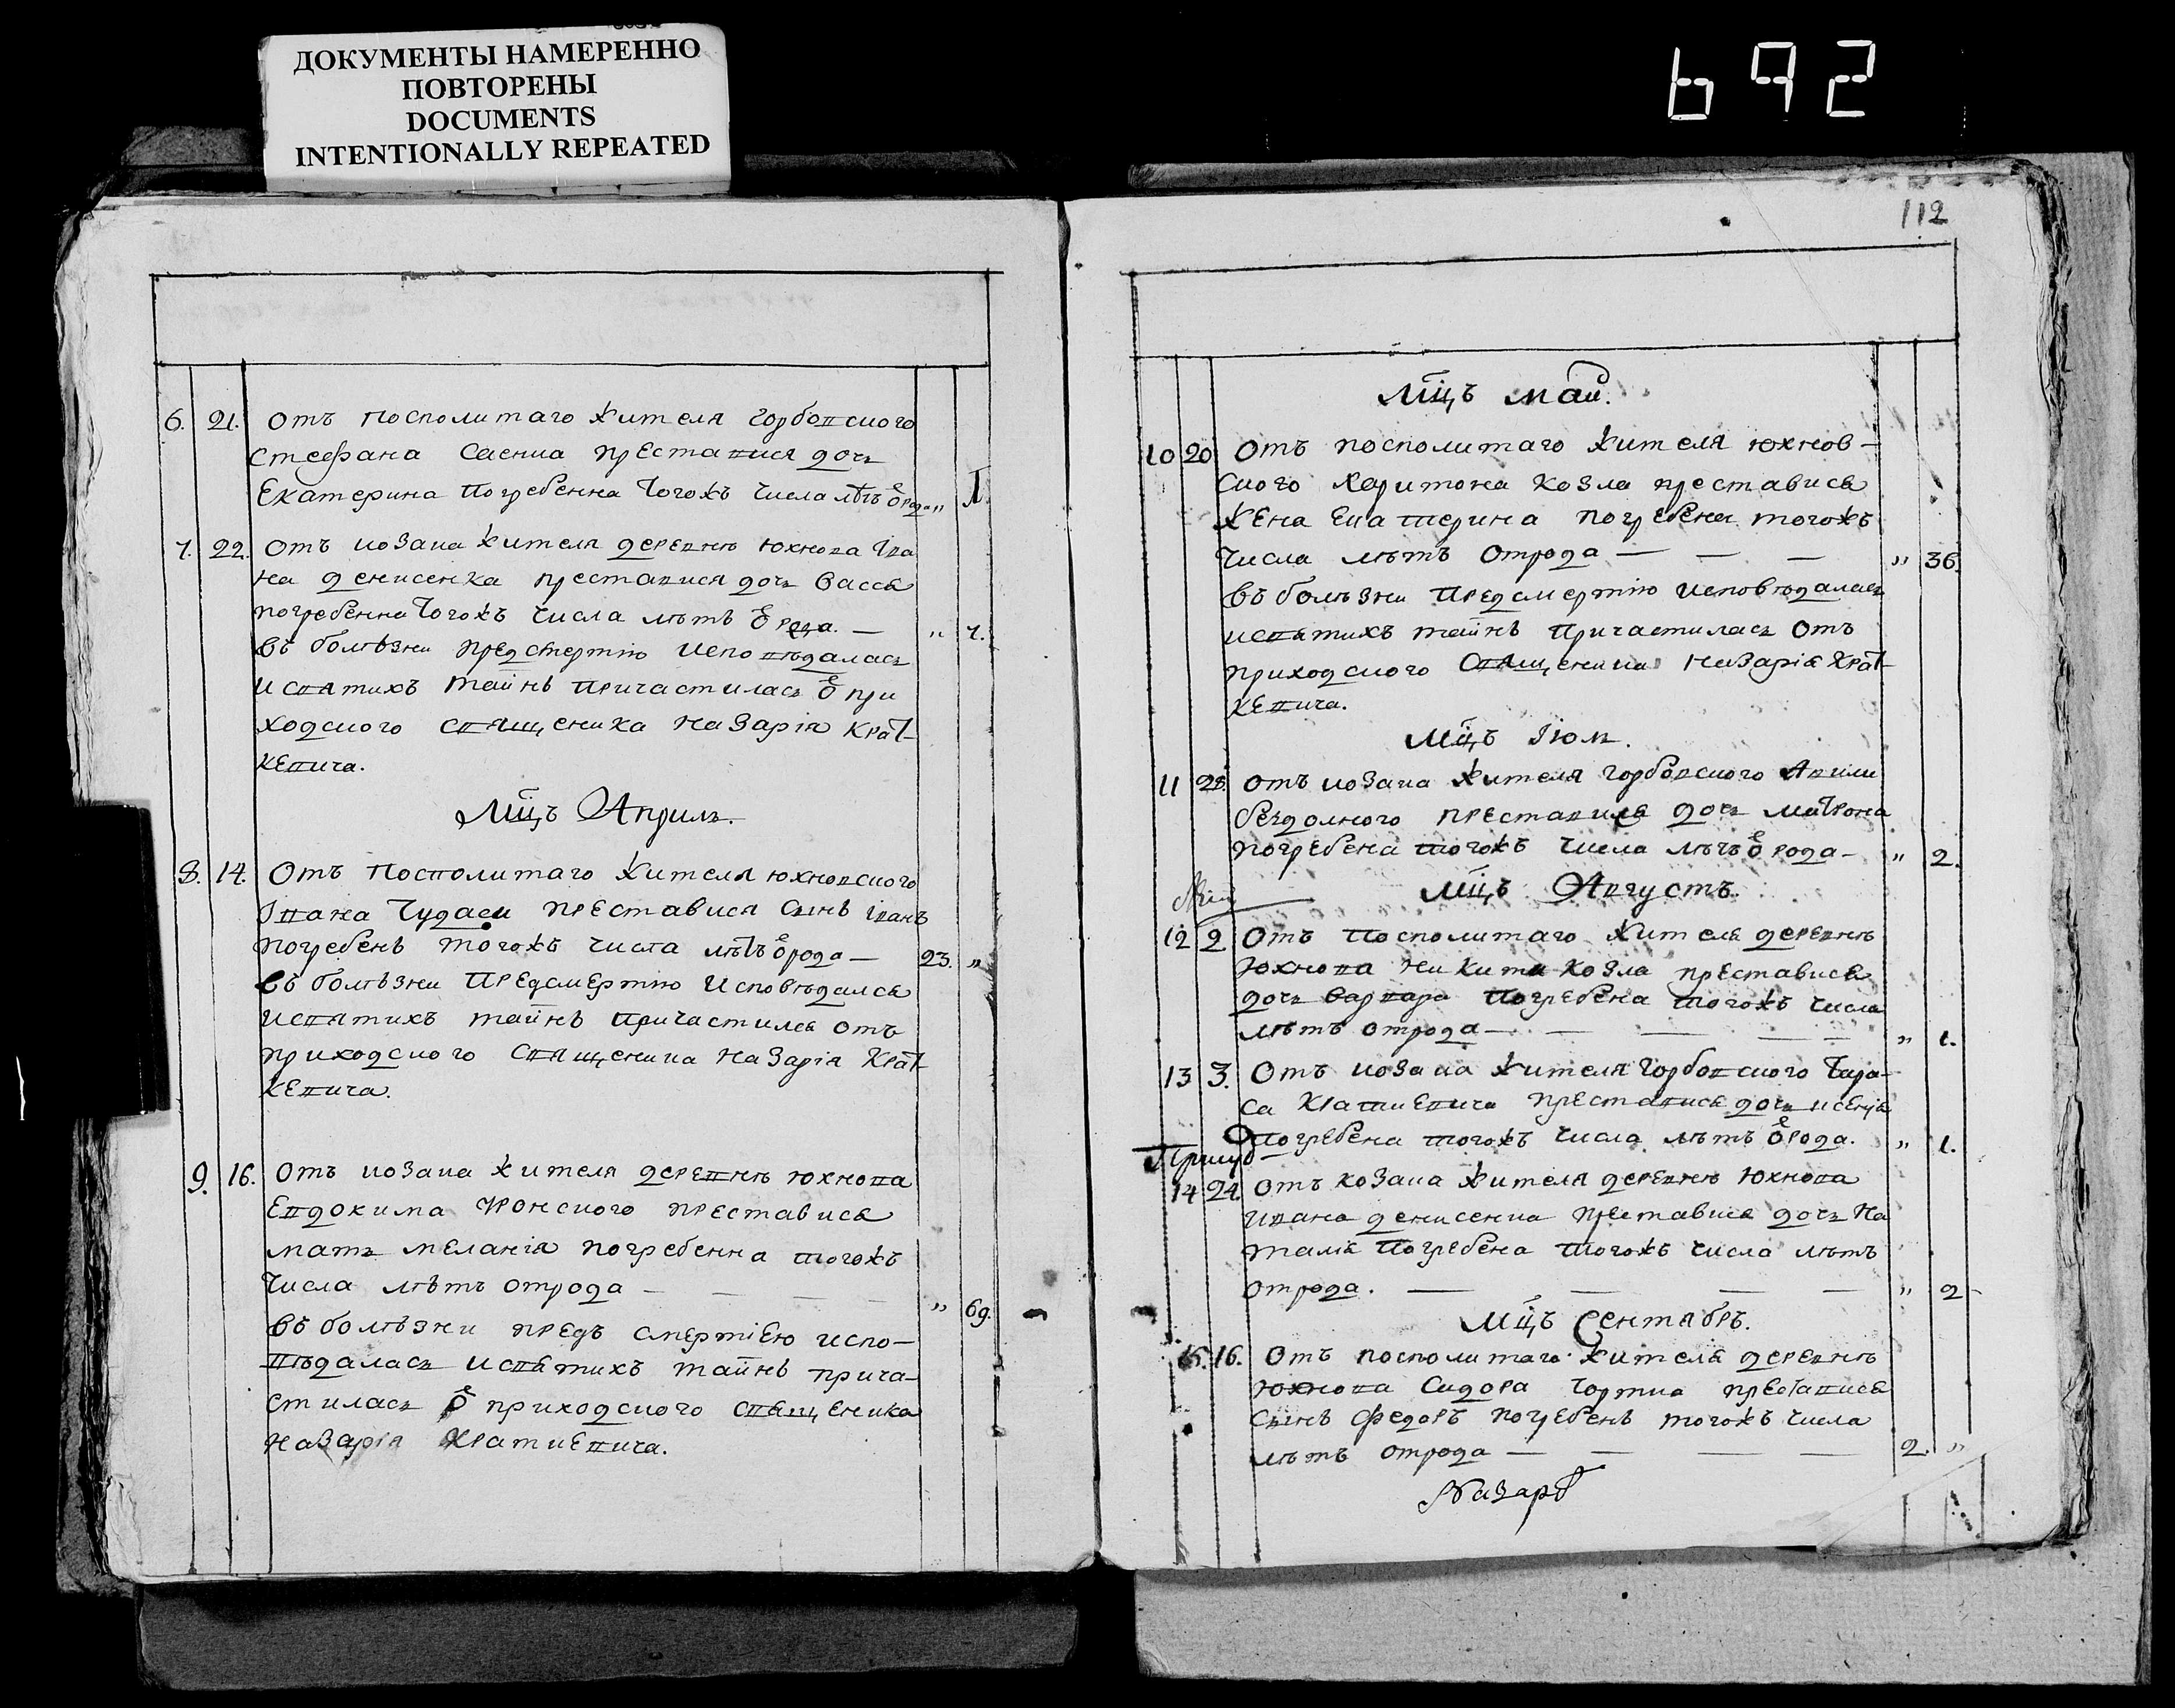 ДОКУМЕНТЫ НАМЕРЕННО
ПОВТОРЕНЫ
DOCUMENTS
INTENTIONALLY REPEATED
692
6. 21. Отъ посполитаго жителя горбовского
Стефана преставися дочь
Екатерина погребенна тогожъ числа лѣтъ ѿ рода „ 1.
7. 22. Отъ козака жителя деревнѣ Юхнова Іва
на Денисенка преставися дочь Васса
погребенна тогожъ числа лѣтъ ѿ рода. — „ 7.
въ болѣзни предсмертію исповѣдалась
и святихъ тайнъ причастилась ѿ при
ходского священика Назарія Крат-
кевича.
Мцъ Априль.
8. 14. Отъ посполитаго жителя юхновского
Івана Чудака преставися сынъ Іванъ
погребенъ тогожъ числа лѣтъ ѿ рода — 23. „
въ болѣзни предсмертію исповѣдался
и святихъ тайнъ причастился отъ
приходского священика Назарія Крат-
кевича.
9. 16. Отъ козака жителя деревнѣ Юхнова
Евдокима преставися
мать Меланія погребенна тогожъ
числа лѣтъ отрода — — — — „ 69.
въ болѣзни предъ смертіею испо-
вѣдалась и святихъ тайнъ прича-
стилась ѿ приходского священика
Назарія Краткевича.
112
Мцъ Май.
10 20 Отъ посполитаго жителя юхнов-
ского Харитона Козла преставися
жена Екатерина погребена тогожъ
числа лѣтъ отрода — — — „ 36.
въ болѣзни предсмертію исповѣдалась
и святихъ тайнъ причастилась отъ
приходского священика Назарія Крат-
кевича.
Мцъ Іюль.
11 28. Отъ козака жителя горбовского
Бездомного преставися дочь Матрона
погребена тогожъ числа лѣтъ ѿ рода — „ 2.
Мцъ Августъ.
12 2. Отъ посполитаго жителя деревнѣ
Юхнова Никити Козла преставися
дочь Варвара погребена тогожъ числа
лѣтъ отрода — — — — — „ 1.
13 3. Отъ козака жителя горбовского Тара-
са Краткевича преставися дочь
погребена тогожъ числа лѣтъ ѿ рода. „ 1.
14 24 Отъ козака жителя деревнѣ Юхнова
Ивана Денисенка преставися дочь На
талія погребена тогожъ числа лѣтъ
отрода. — — — — „ 2
Мцъ Сентябрь.
15. 16. Отъ посполитаго жителя деревнѣ
Юхнова Сидора преставися
сынъ Федоръ погребенъ тогожъ числа
лѣтъ отрода — — — — 2. „